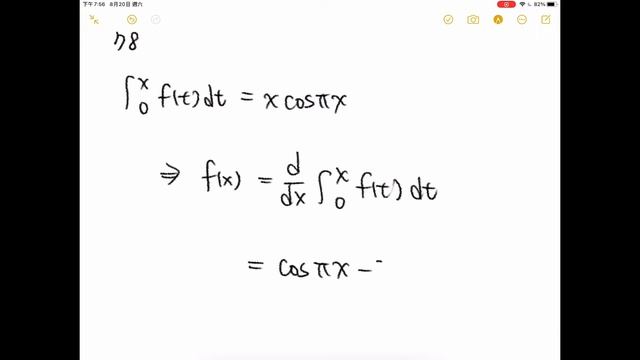 下午7:56 8月20日 週六
82%
78
∫₀ˣ f(t)dt = x cosπx
⇒ f(x) = d/dx ∫₀ˣ f(t) dt
= cosπx -